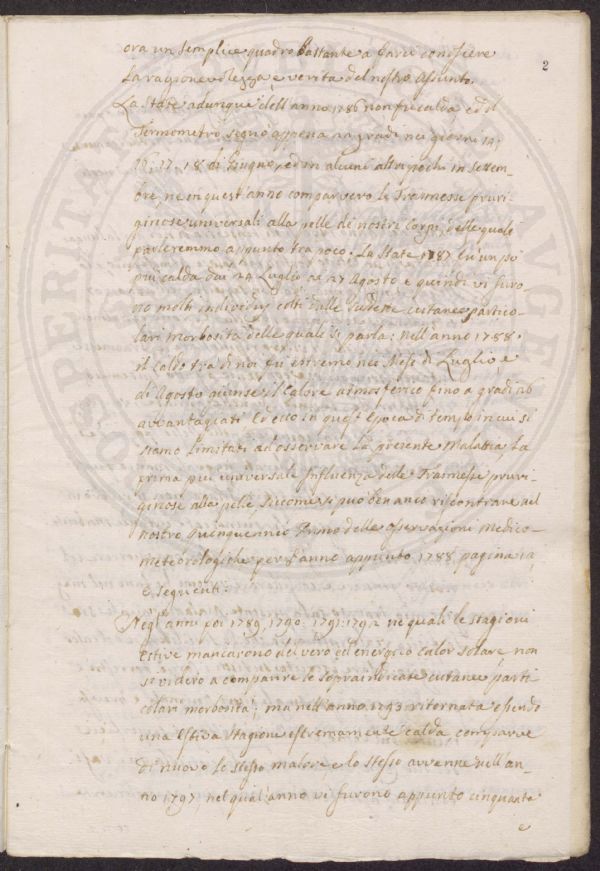 2
ora un semplice quadro bastante a farci conoscere
la ragionevolezza, e verita del nostro assunto.
La State adunque dell'anno 1786 non fu calda ed il
Termometro segnò appena gradi nei giorni 14,
16, 17, 18 di Giugno, ed in alcuni altri pochi in Settem-
bre, ne in quest'anno comparvero le Trasmesse pruri-
ginose universali alla pelle di nostri Corpi, delle quali
parleremmo appunto tra poco. La State 1787 fu un po
più calda dai 24 Luglio ai 27 Agosto e quindi vi furo
no molti individui colti dalle sudette cutanee partico-
lari morbosità delle quali si parla: nell'anno 1788.
il caldo tra di noi fu estremo nei Mesi di Luglio, e
di Agosto giunse il Calore atmosferico fino a gradi
avvantaggiati Ed ecco in quest'Epoca di tempo in cui si
siamo limitati ad osservare la presente Malattia la
prima più universale Influenza delle Trasmesse pruri-
ginose alla pelle siccome si può ben anco riscontrare nel
nostro Quenquennio Primo delle osservazioni Medico-
meteorologiche per l'anno appunto 1788 pagina
e seguenti.
Negl'anni poi 1789, 1790. 1791. 1792 ne quali le stagioni
estive mancarono del vero ed energico calor solare, non
si videro a comparire le sopraindicate cutanee parti
colari morbosità; ma nell'anno 1793 ritornata essendo
una Estiva Stagione estremamente calda comparve
di nuovo lo stesso malore, e lo stesso avvenne nell'an-
no 1797, nel qual'anno vi furono appunto cinquanta
e